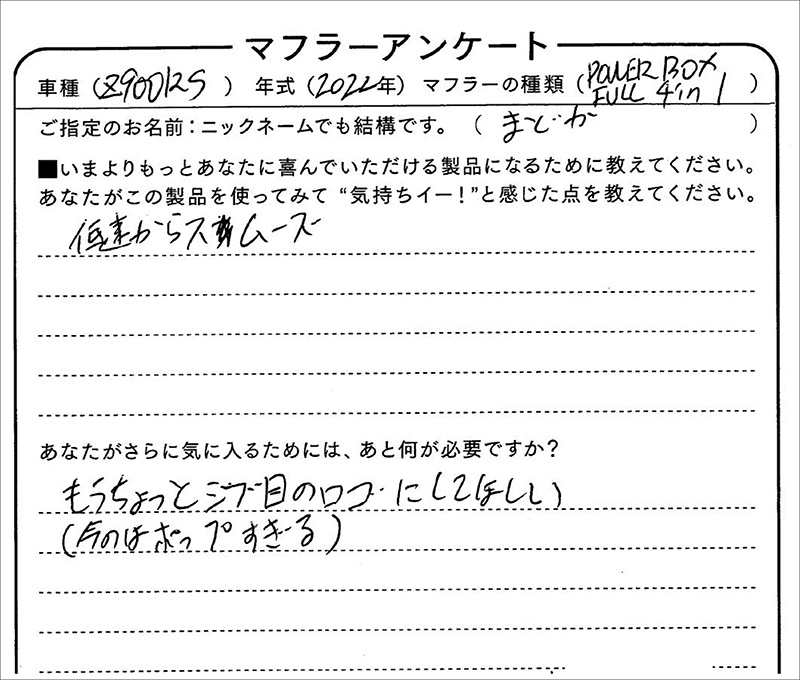 マフラーアンケート
車種（Z900RS）年式（2022年）マフラーの種類（POWER BOX FULL 4in1）
ご指定のお名前：ニックネームでも結構です。（まどか）
■いまよりもっとあなたに喜んでいただける製品になるために教えてください。
あなたがこの製品を使ってみて“気持ちイー！”と感じた点を教えてください。
低速からスムーズ
あなたがさらに気に入るためには、あと何が必要ですか？
もうちょっとジブ目のロゴにしてほしい
（今のはポップすぎる）